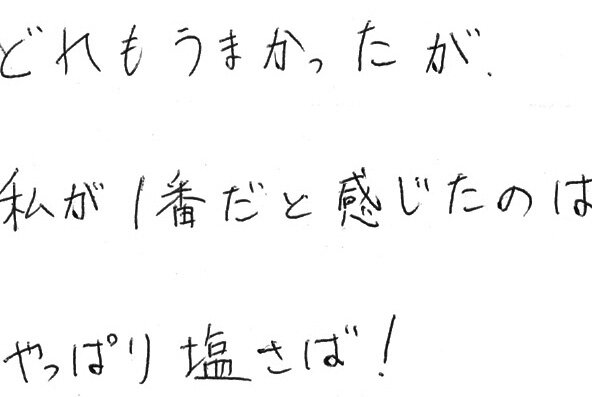 どれもうまかったが、
私が1番だと感じたのは
やっぱり塩さば!